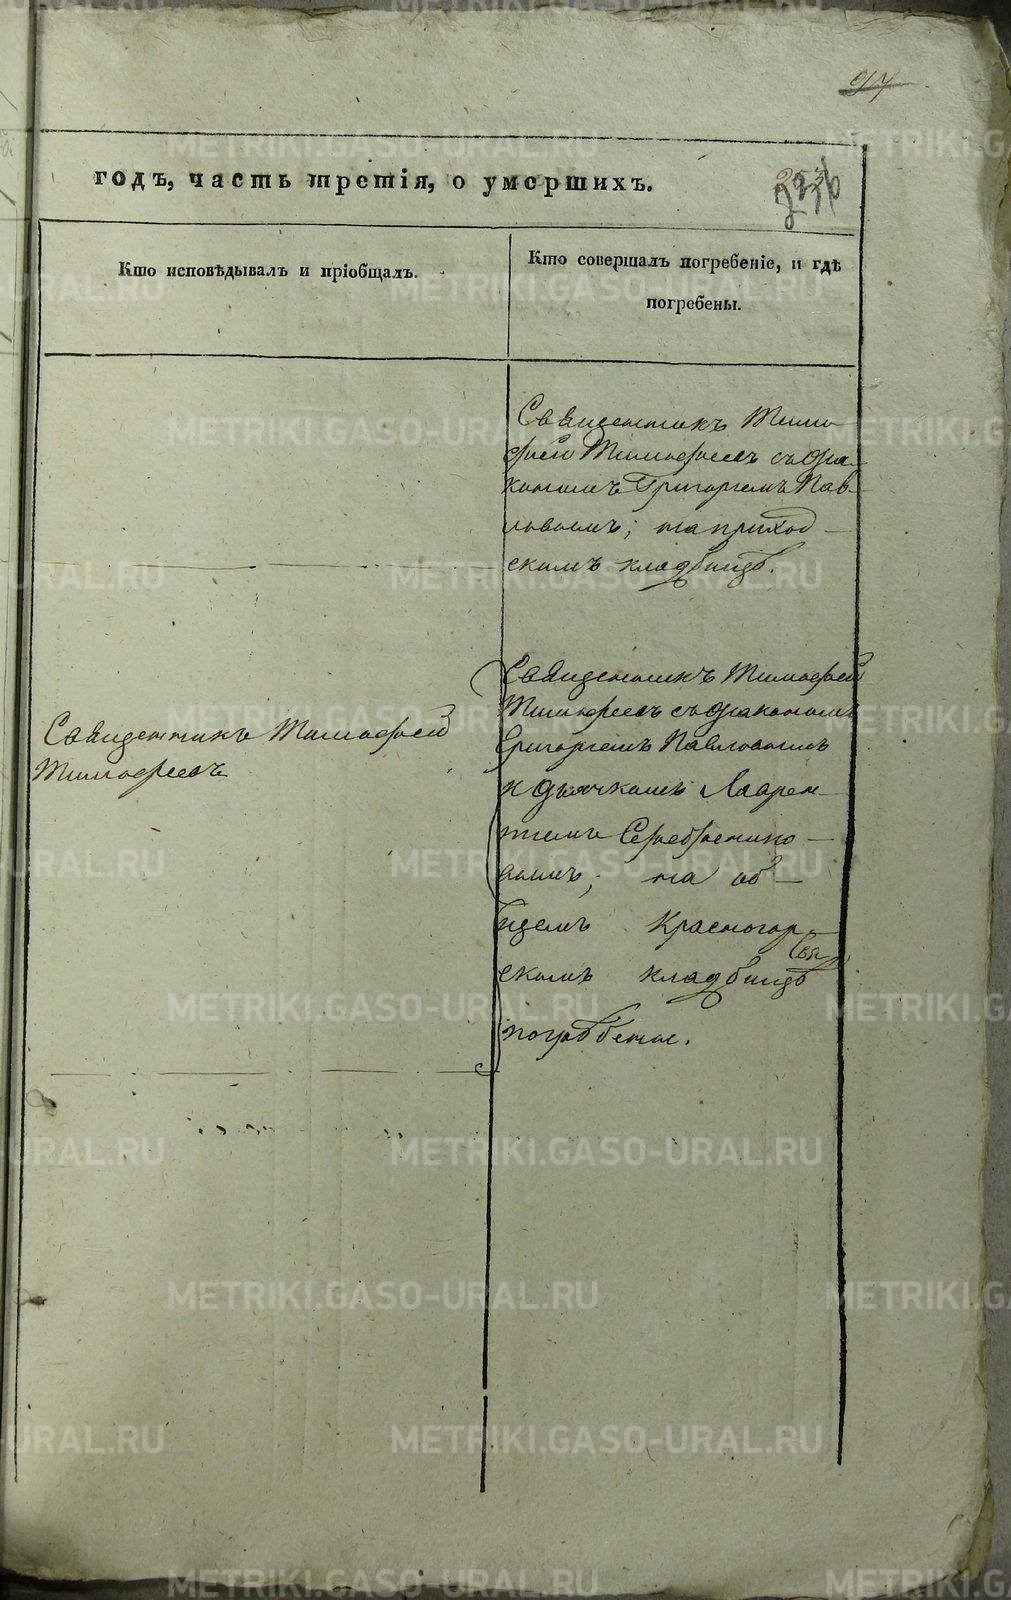 97
годъ, часть третія, о умершихъ.
236
Кто исповѣдывалъ и пріобщалъ.
Кто совершалъ погребеніе, и гдѣ
погребены.
Священникъ Тимо-
фей Тимофеевъ съ дья-
кономъ Григоріемъ Пав-
ловымъ; на приход-
скомъ кладбищѣ.
Священникъ Тимофей
Тимофеевъ
Священникъ Тимофей
Тимофеевъ съ дьякономъ
Григоріемъ Павловымъ
и дьячкомъ Лаврен-
тіемъ Серебренико-
вымъ; на об-
щемъ Красногор-
скомъ кладбищѣ
погребены.
METRIKI.GASO-URAL.RU